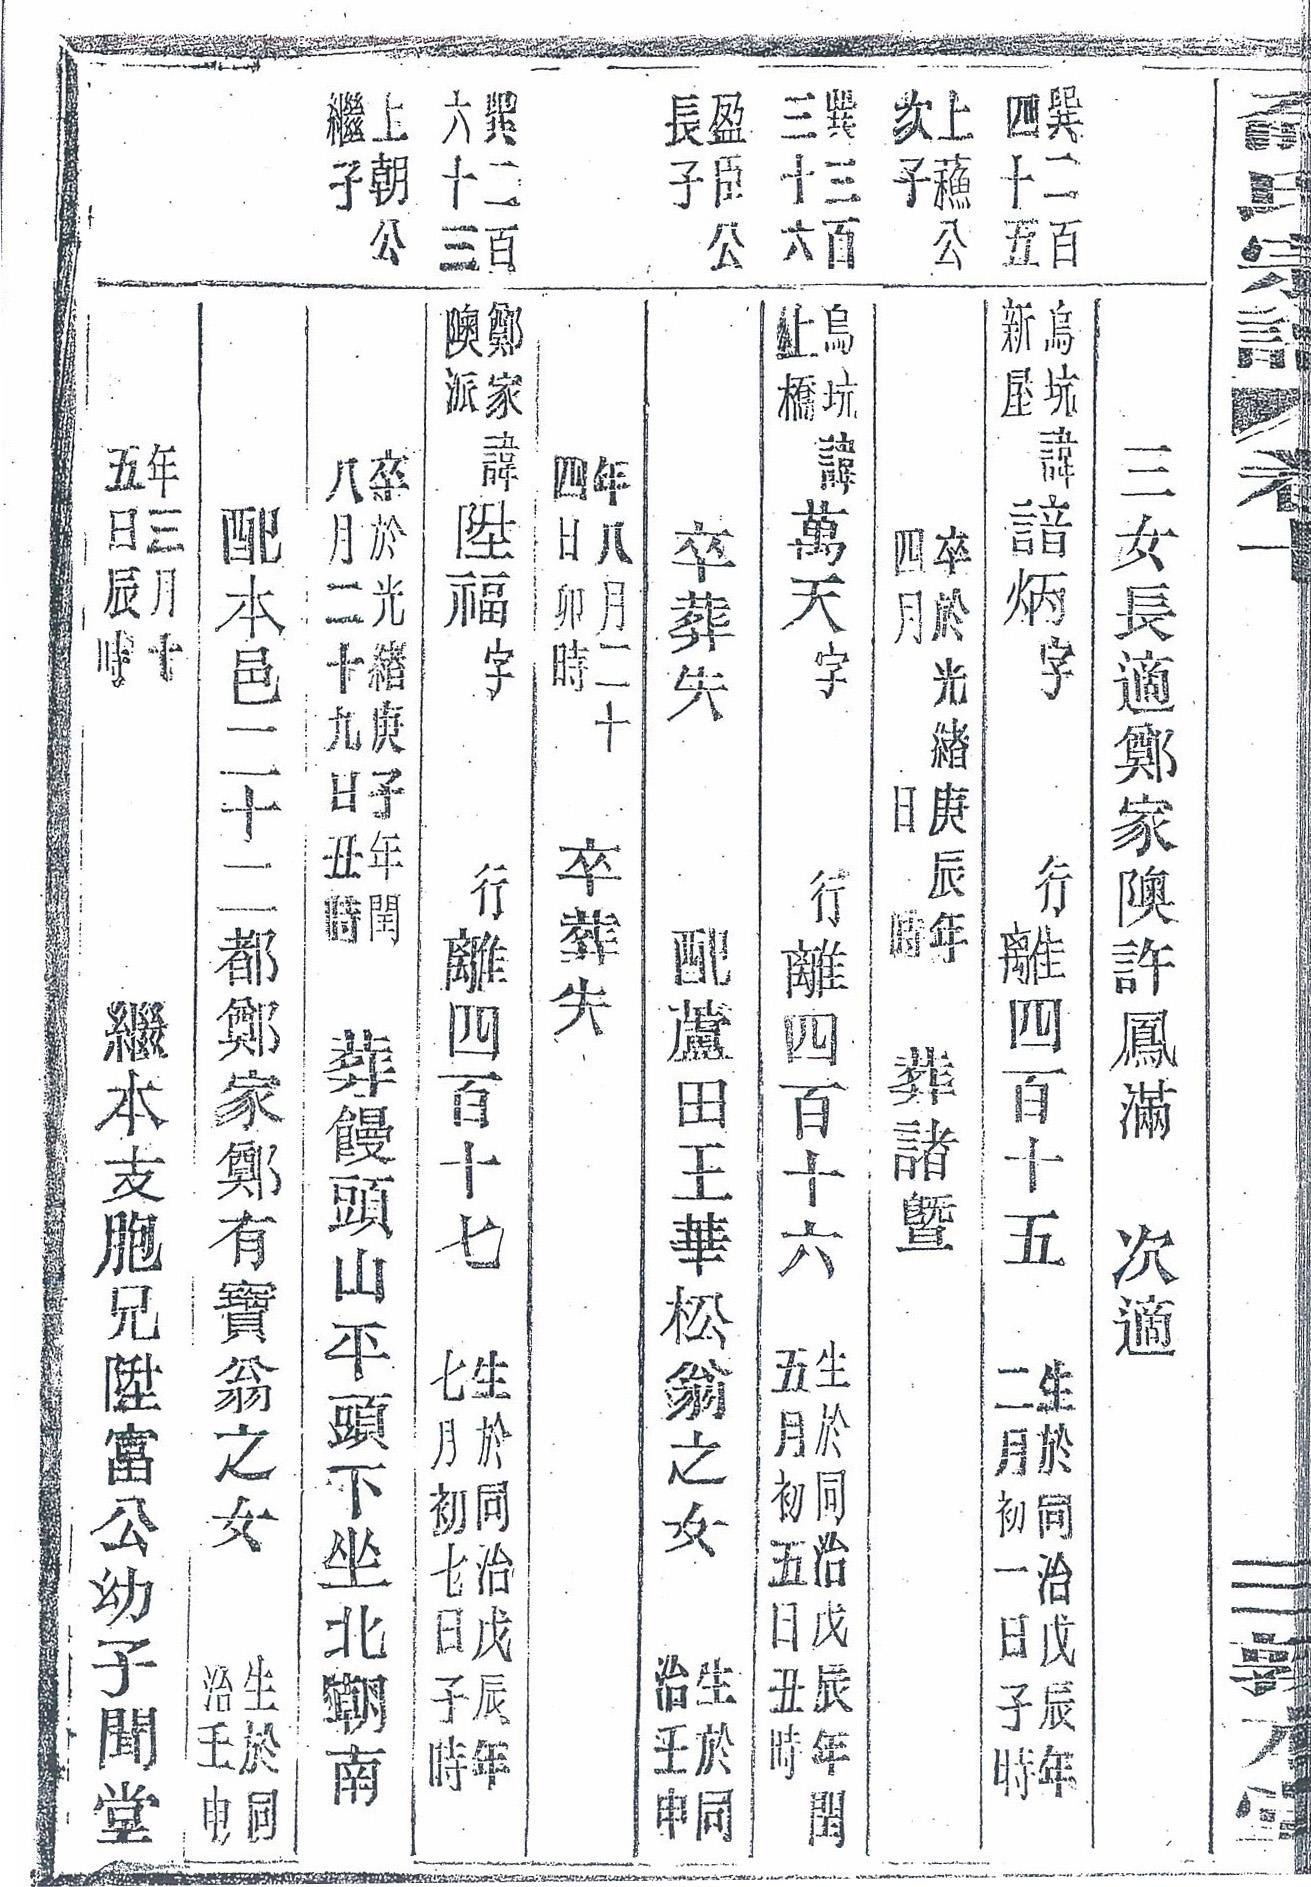 氏宗譜 卷十
三 敦
三女長適鄭家隩許鳳滿　次適
巽二百四十五　烏坑新屋　諱諳炳字　行離四百十五　生於同治戊辰年二月初一日子時
上蘓公次子　卒於光緒庚辰年四月　日　時　葬諸暨
巽三百三十六　烏坑上橋　諱萬天字　行離四百十六　生於同治戊辰年閏五月初五日丑時
盈臣公長子　卒葬失　配蘆田王華松翁之女　生於同治壬申
年八月二十四日卯時　卒葬失
巽二百六十三　鄭家隩派　諱陞福字　行離四百十七　生於同治戊辰年七月初七日子時
上朝公繼子　卒於光緒庚子年閏八月二十九日丑時　葬饅頭山平頭下坐北朝南
配本邑二十二都鄭家鄭有寶翁之女　生於同治壬申
年三月十五日辰時　繼本支胞兄陞富公幼子聞堂